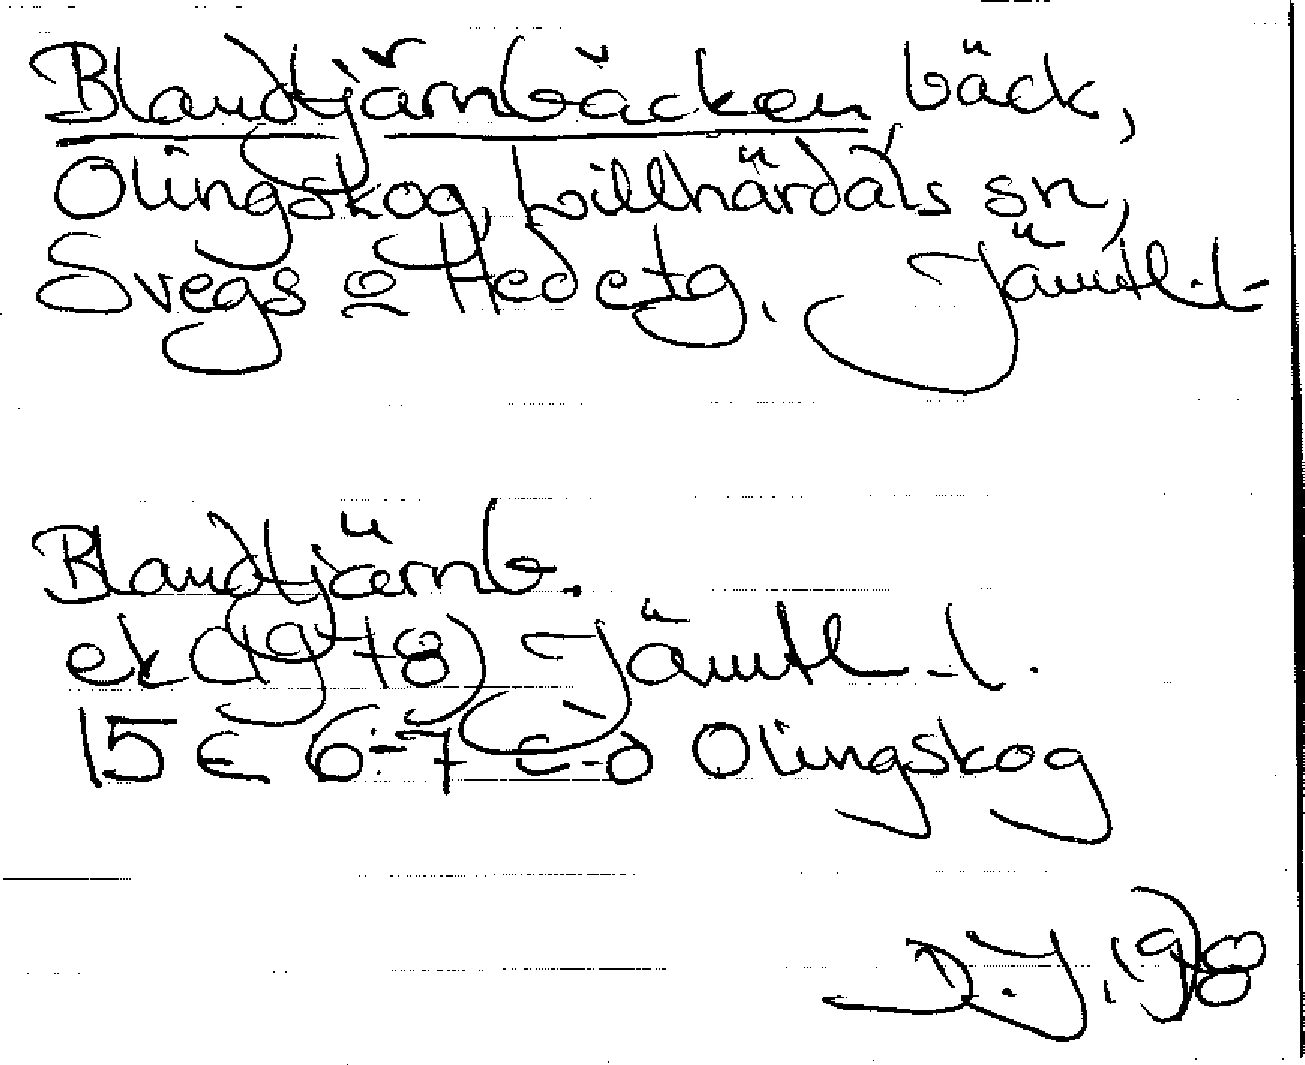 Blandtjärnbäcken bäck,
Olingskog, Lillhärdals sn,
Svegs o Hedetg. Jämtl. l
Blandtjärnb.
ek (1978) Jämtl. l.
15E 6-7 c-d Olingskog
D.J. 198